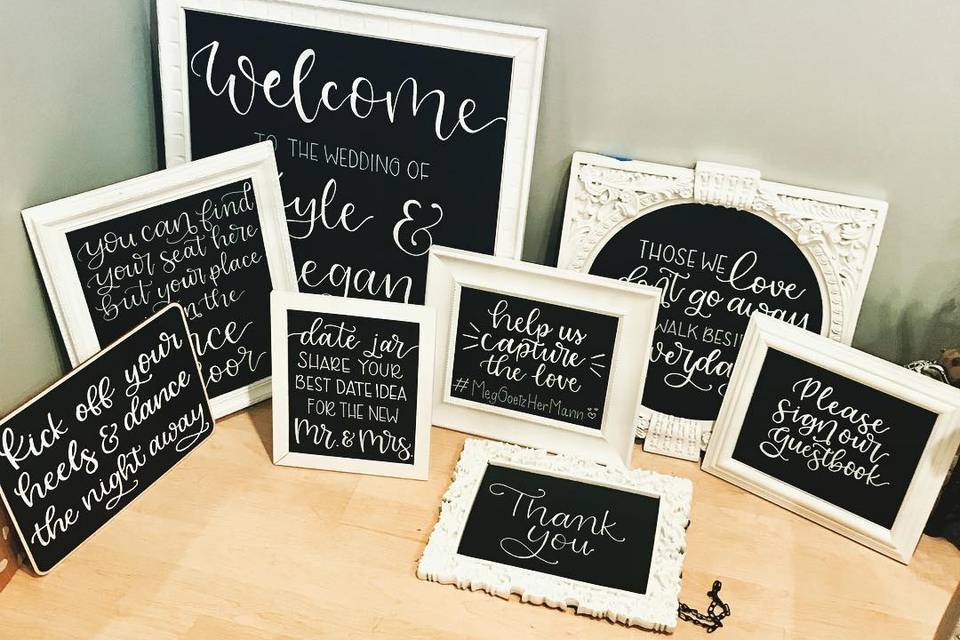 welcome
TO THE WEDDING OF
Kyle &
egan
you can find
your seat here
but your place
on the
nce
oor
Kick off your
heels & dance
the night away
date jar
SHARE YOUR
BEST DATE IDEA
FOR THE NEW
Mr. & Mrs.
help us
capture
the love
#MegGoetzHerMann
THOSE WE love
don't go away
WALK BESI
veryda
Please
sign our
guestbook
Thank
you